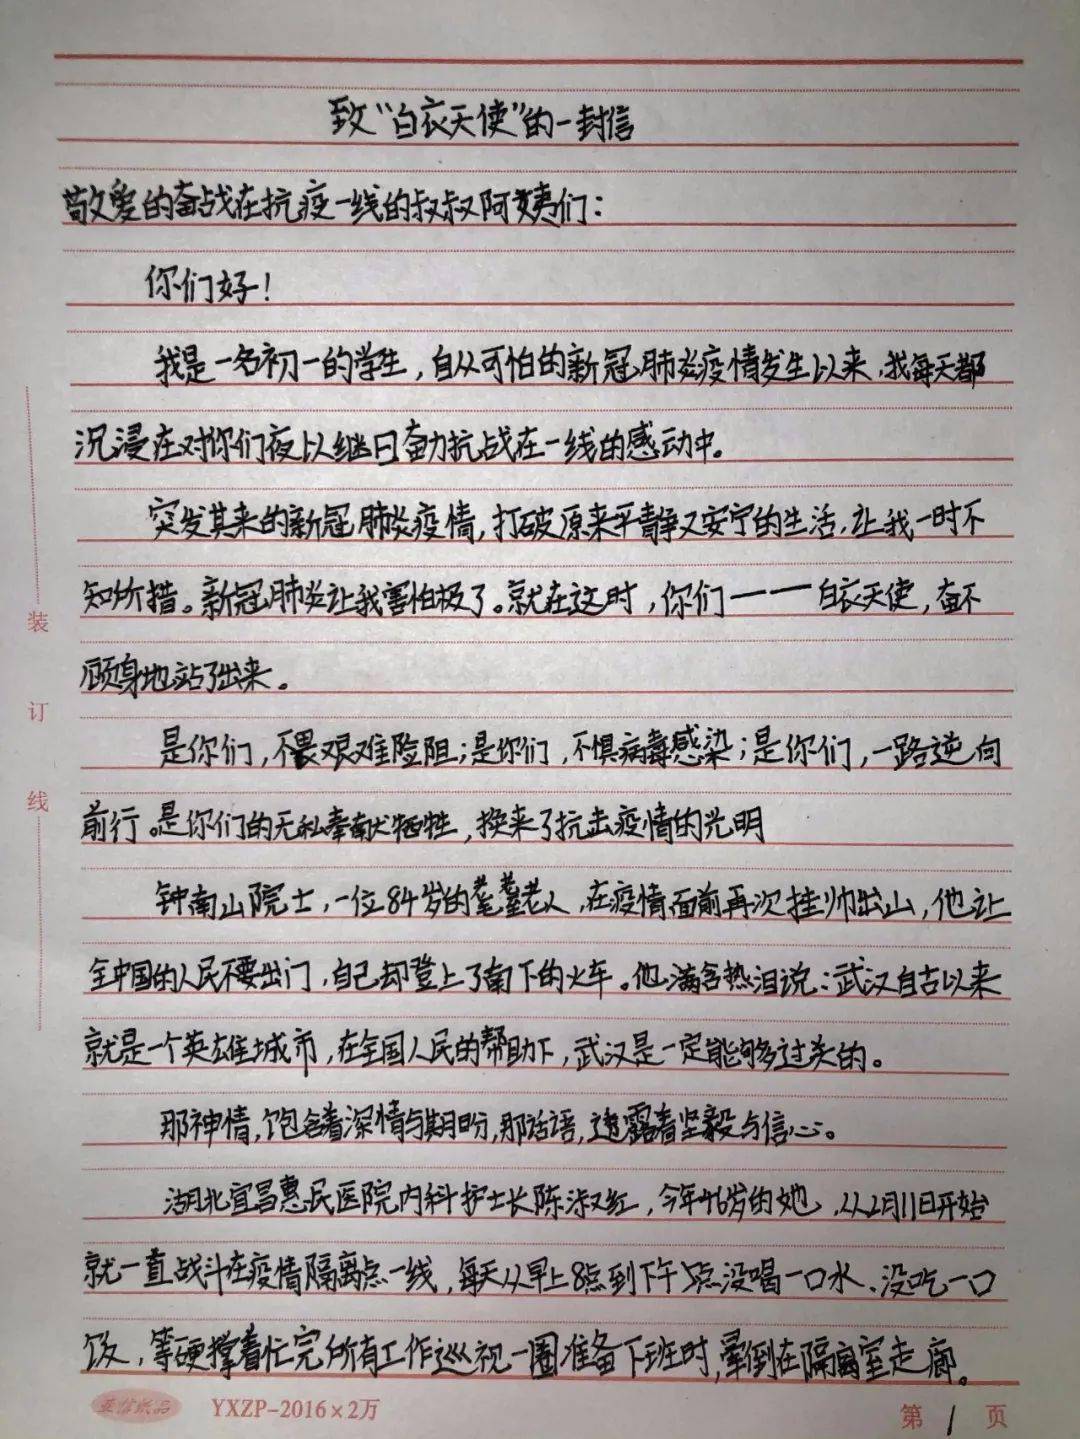 致“白衣天使”的一封信
敬爱的奋战在抗疫一线的叔叔阿姨们：
你们好！
我是一名初一的学生，自从可怕的新冠肺炎疫情发生以来，我每天都
沉浸在对你们夜以继日奋力抗战在一线的感动中。
突发其来的新冠肺炎疫情，打破原来平静又安宁的生活，让我一时不
知所措。新冠肺炎让我害怕极了。就在这时，你们——白衣天使，奋不
顾身地站了出来。
是你们，不畏艰难险阻；是你们，不惧病毒感染；是你们，一路逆向
前行。是你们的无私奉献牺牲，换来了抗击疫情的光明
钟南山院士，一位84岁的耄耋老人，在疫情面前再次挂帅出山，他让
全中国的人民不要出门，自己却登上了南下的火车。他满含热泪说：武汉自古以来
就是一个英雄城市，在全国人民的帮助下，武汉是一定能够过关的。
那神情，饱含着深情与期盼，那话语，透露着坚毅与信心。
湖北宜昌惠民医院内科护士长陈淑红，今年46岁的她，从2月11日开始
就一直战斗在疫情隔离点一线，每天从早上8点到下午5点没喝一口水、没吃一口
饭，等硬撑着忙完所有工作巡视一圈准备下班时，晕倒在隔离室走廊。
装
订
线
亚信纸品 YXZP-2016×2万 第1页